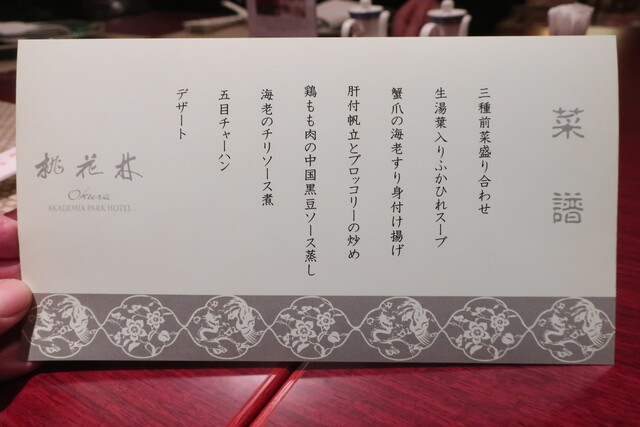 菜譜
三種前菜盛り合わせ
生湯葉入りふかひれスープ
蟹爪の海老すり身付け揚げ
肝付帆立とブロッコリーの炒め
鶏もも肉の中国黒豆ソース蒸し
海老のチリソース煮
五目チャーハン
デザート
桃花林
Okura
AKADEMIA PARK HOTEL